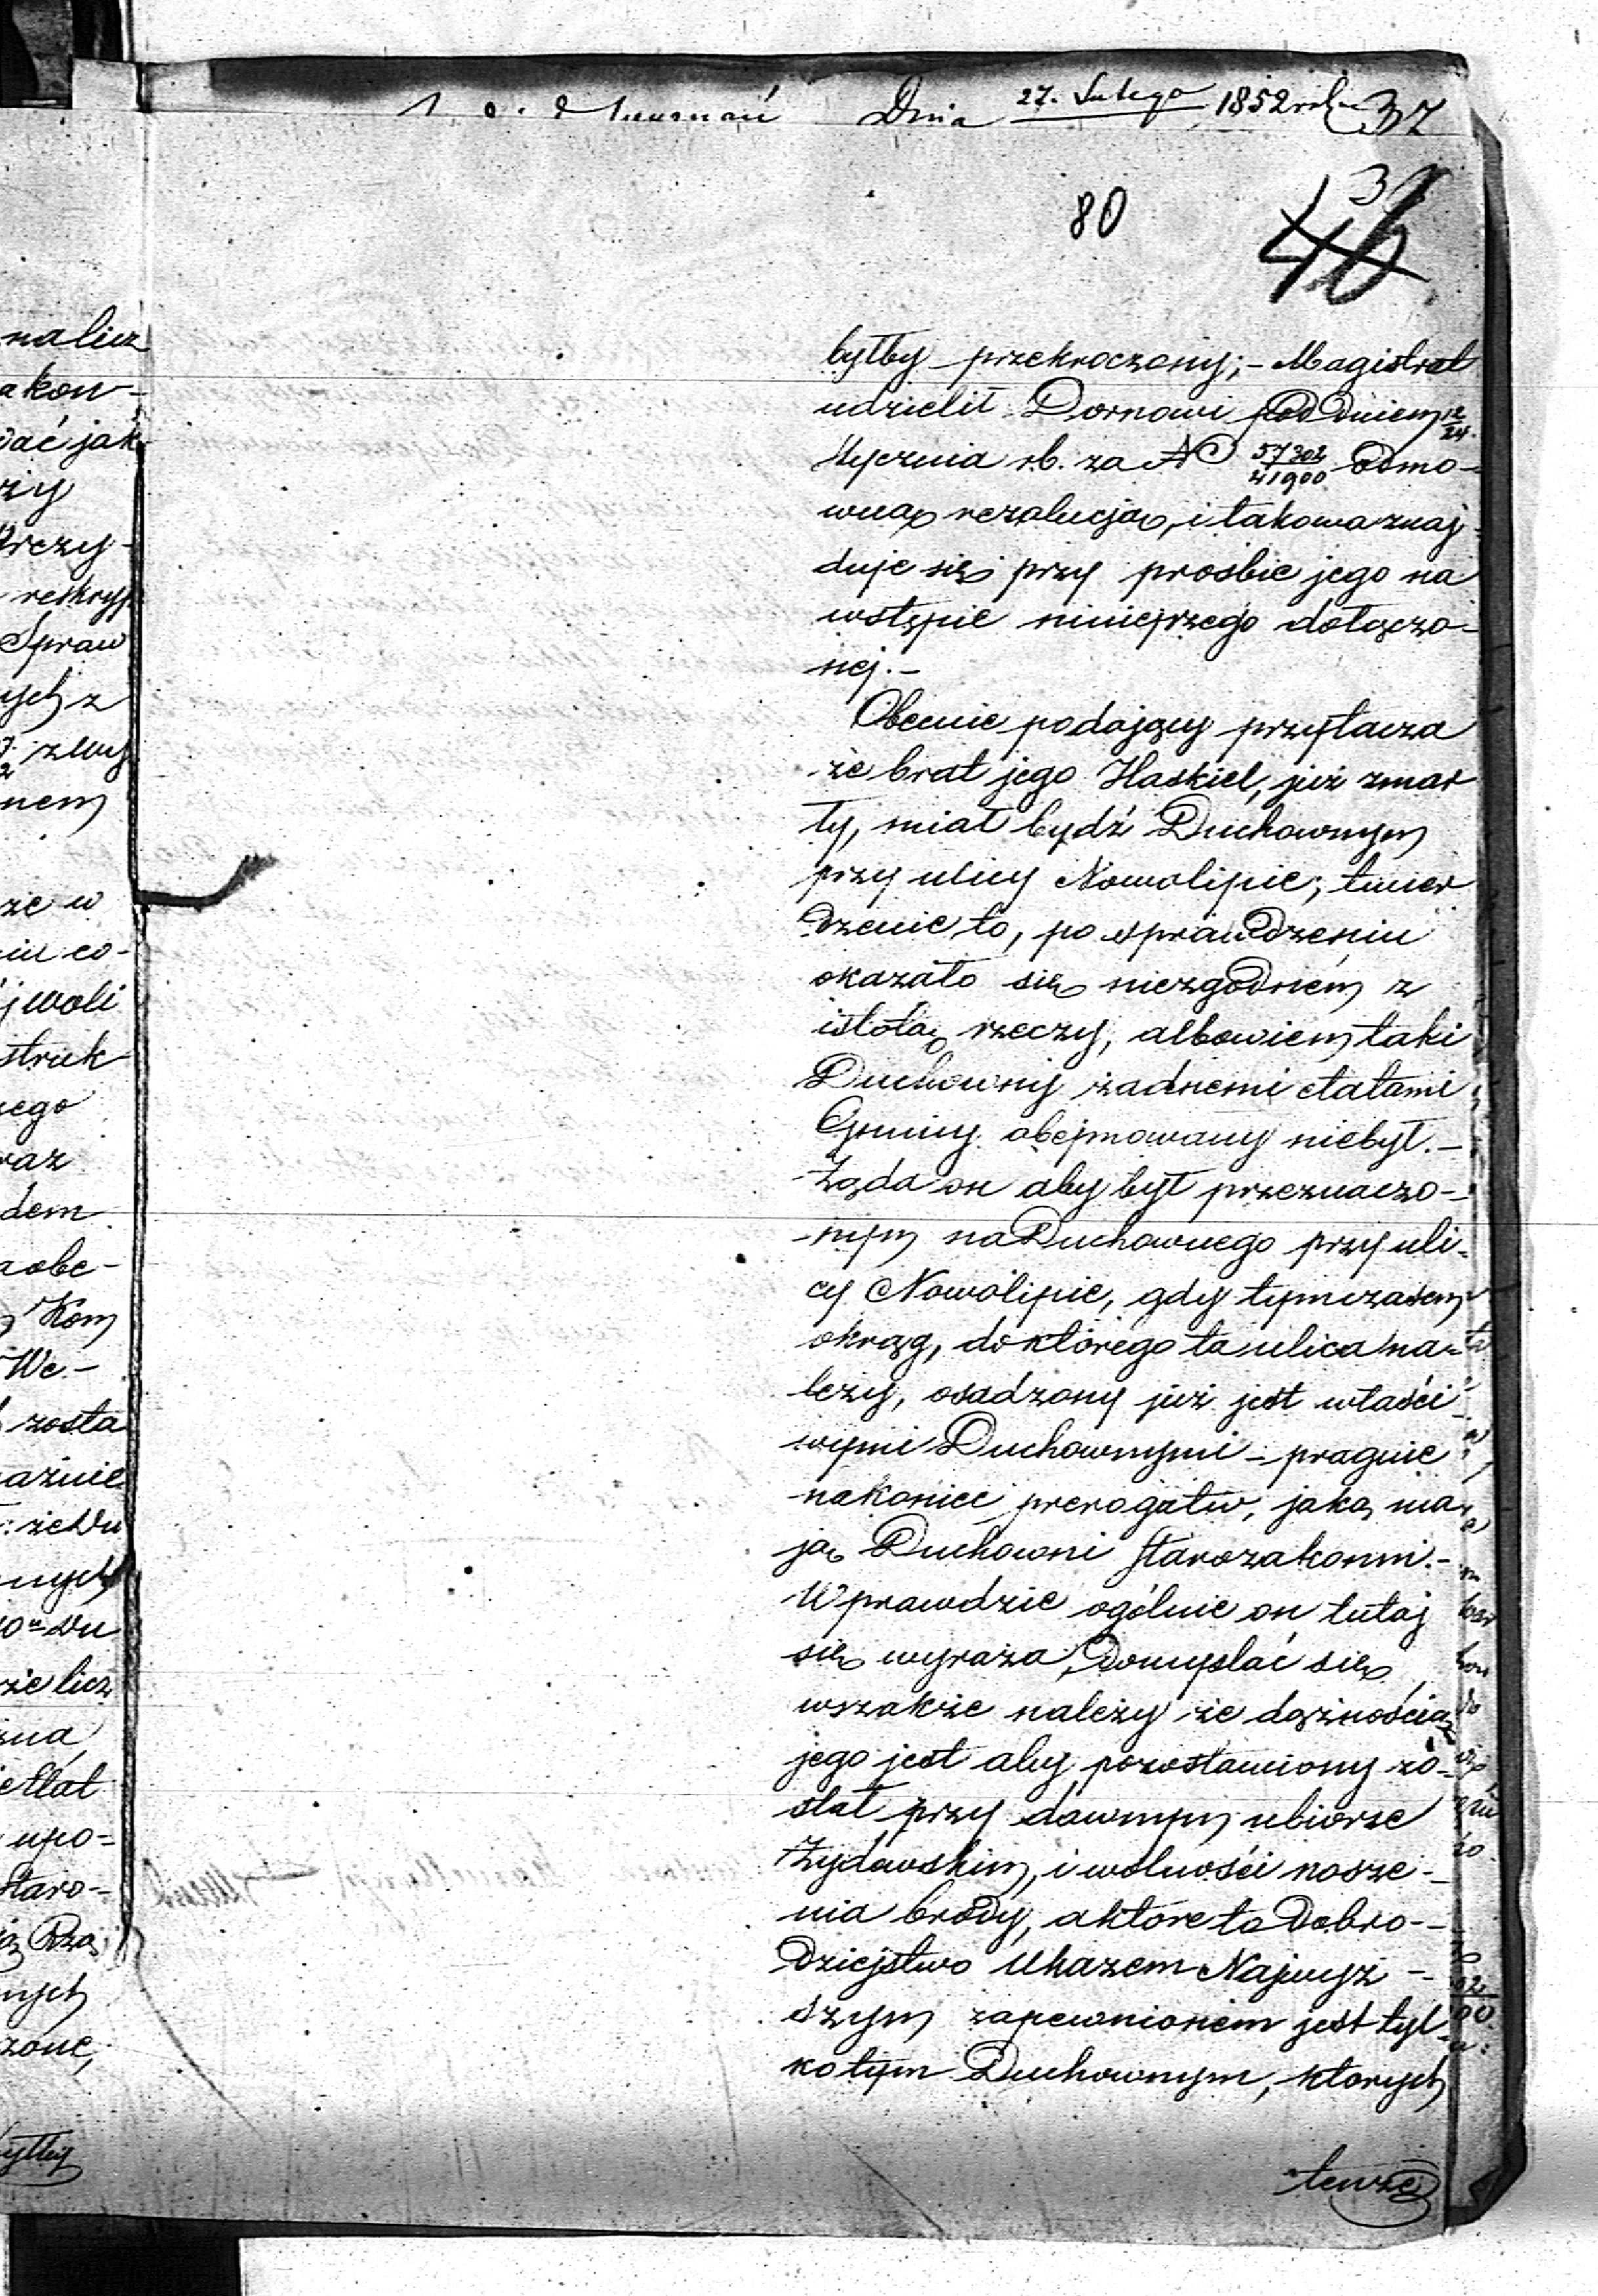 Dnia 27. Lutego 1852 rok 37
37
80
46
byłby przekroczony; - Magistrat
udzielił Dornowi pod Dniem 12/24.
Stycznia rb. za N 57302/41900 Odmo-
wną rezolucją, i takowa znaj
duje się przy prośbie jego na
wstępie niniejszego dołączo-
nej. -
Obecnie podający przytacza
że brat jego Haskiel, już zmar
ły, miał bydź Duchownym
przy ulicy Nowolipie; twier
dzenie to, po sprawdzeniu
okazało się niezgodném z
istotą rzeczy, albowiem taki
Duchowny żadnemi etatami
Gminy obejmowany niebył. -
Żąda on aby był przeznaczo-
nym na Duchownego przy uli-
cy Nowolipie, gdy tymczasem
okrąg, do którego ta ulica na-
leży, osadzony już jest właści
wymi Duchownymi - pragnie
nakoniec prerogatw, jaką ma
ją Duchowni starozakonni. -
Wprawdzie ogólnie on tutaj
się wyraża, Domyslać się
wszakże należy że dążnością
jego jest aby pozostawiony zo-
stał przy dawnym ubiorze
Żydowskim, i wolności nosze-
nia brody, a które to Dobro-
dziejstwo Ukazem Najwyż-
szym zapewnionem jest tyl-
ko tym Duchownym, ktorych
tenże
nalicz
akon-
dać jak
reskryp
Spraw
ych z
nem
że w
iu co-
j woli
struk-
raz
dem
aobe-
Kom
We-
zosta
aźnie
nych
że licz
etat
upo-
staro-
nych
zone,
byłby